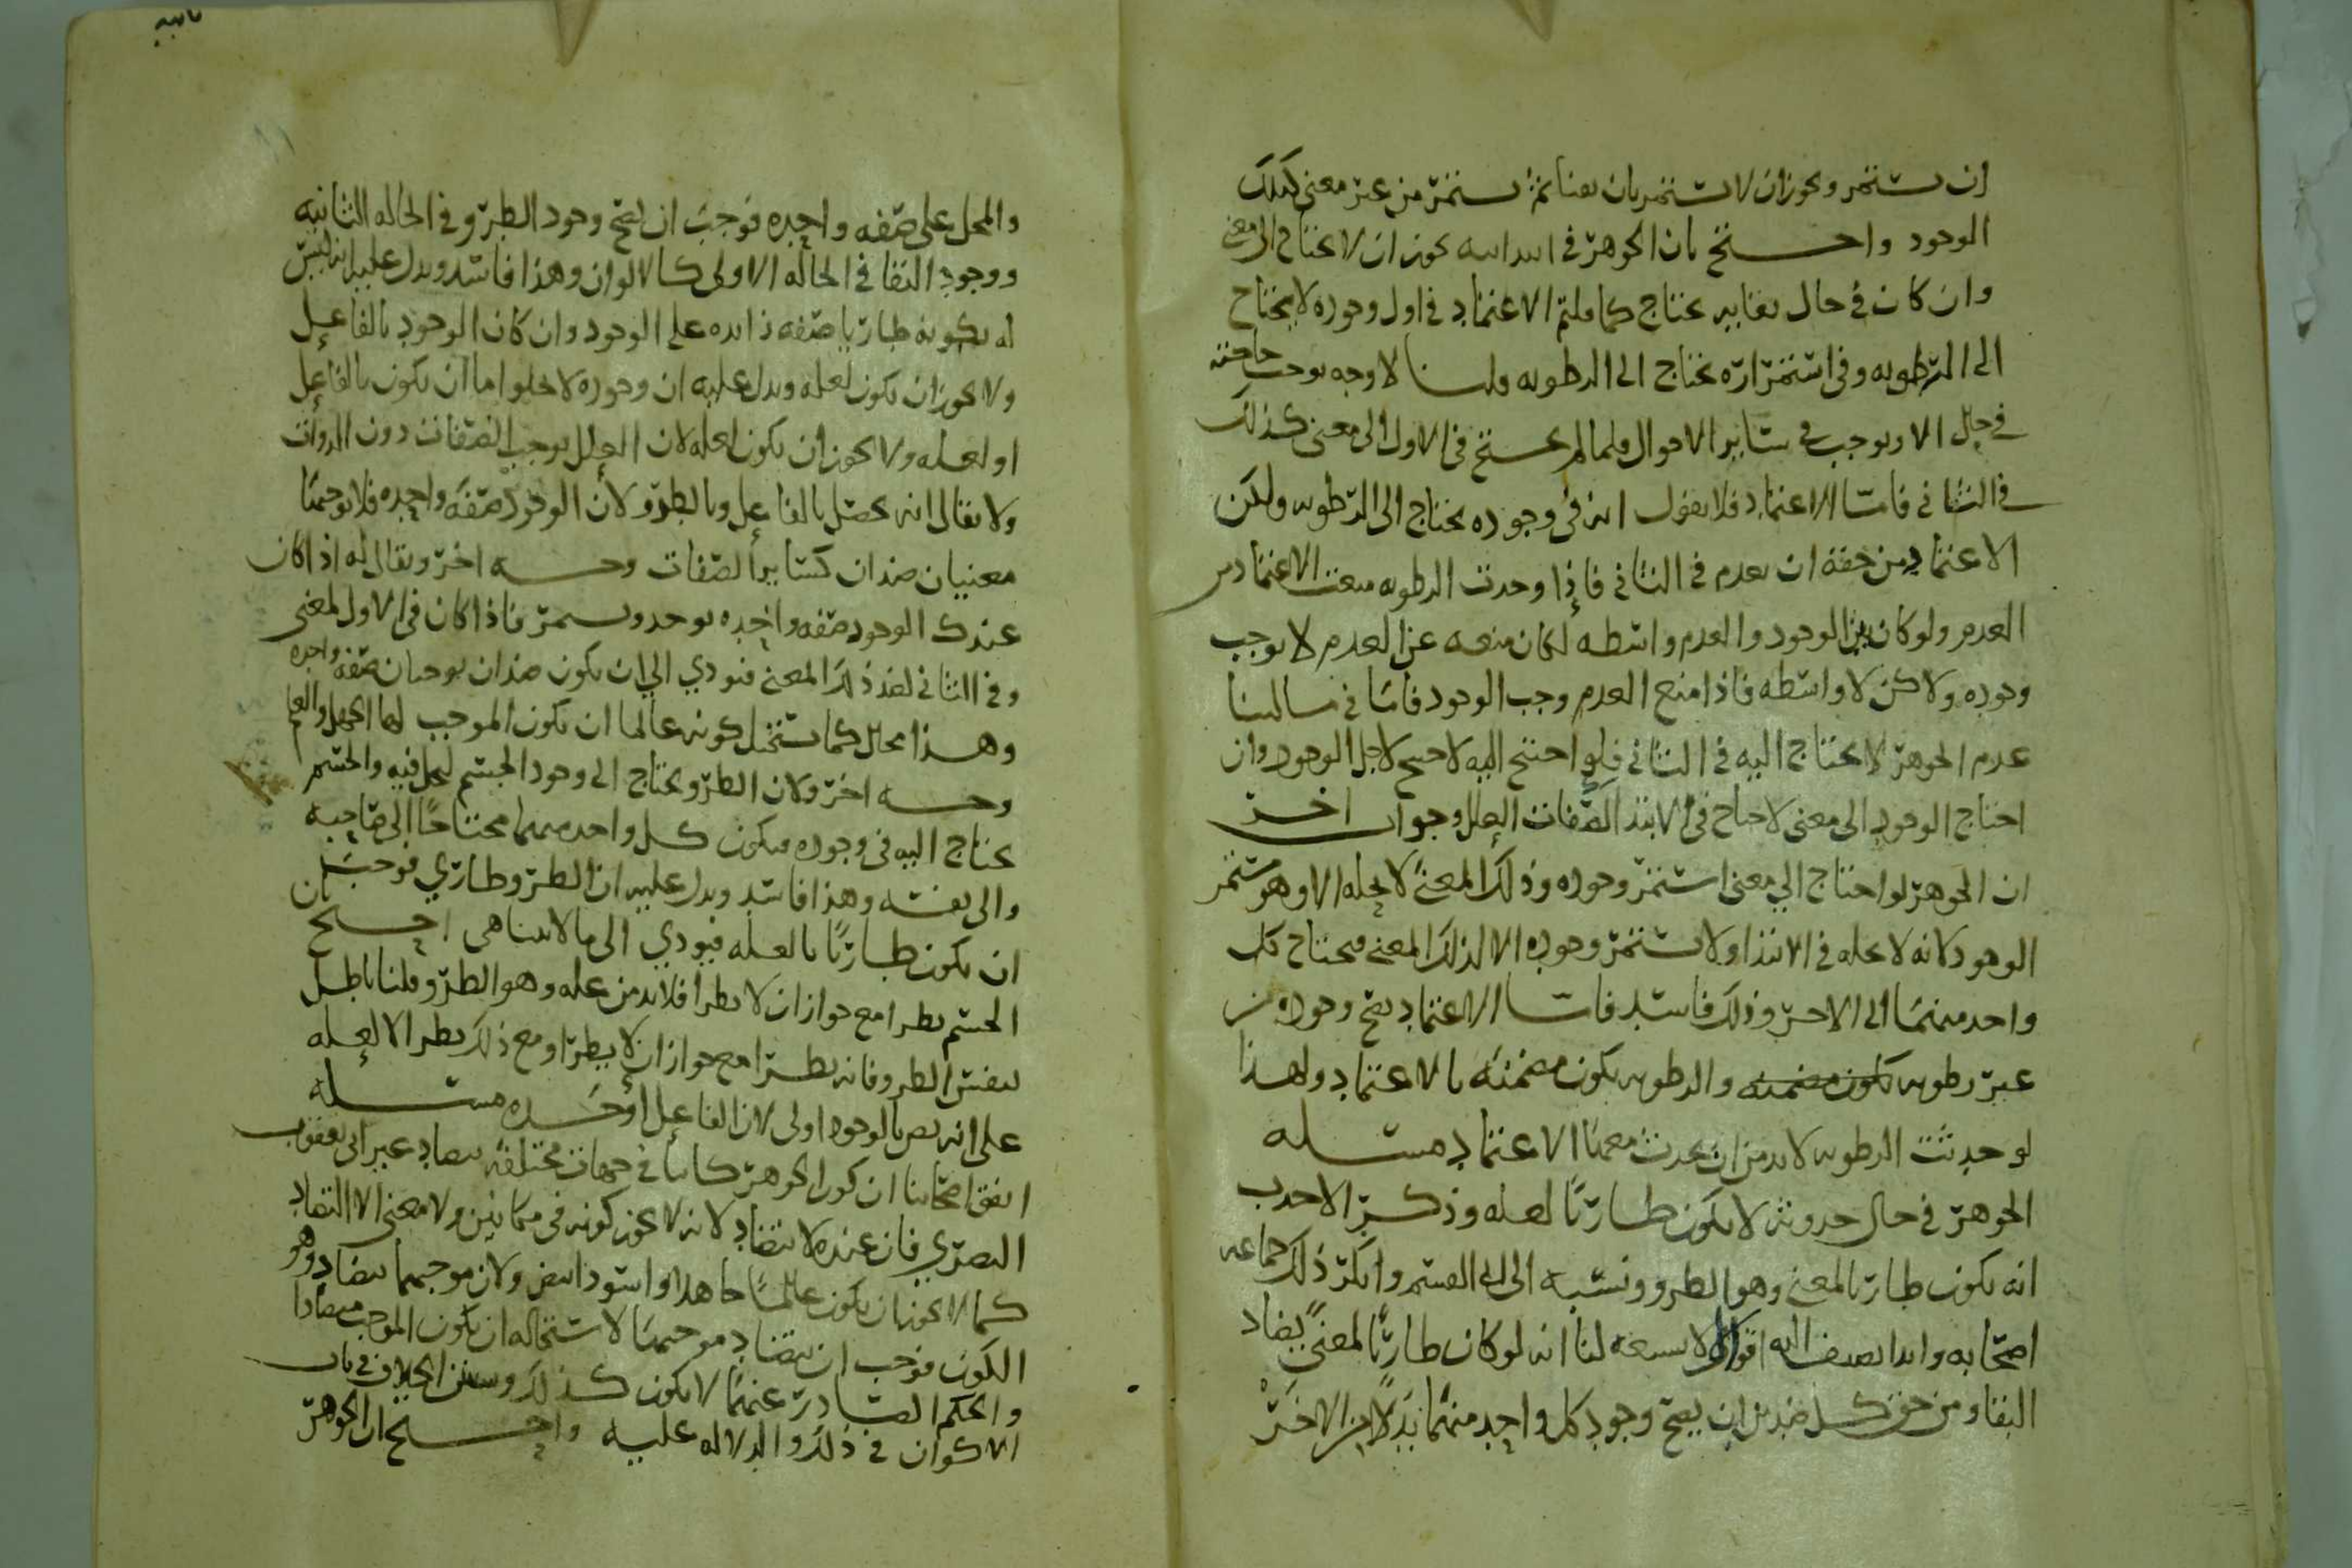 ان يستمر ويجوز ان لا يستمر بان يفنا ثم يستمر من غير معنى كذلك
الوجود واحتج بان الجوهر في ابتدايه يجوز ان لا يحتاج الى معنى
وان كان في حال بقايه يحتاج كما قلتم الاعتماد في اول وجوده لا يحتاج
الى الرطوبه وفي استمراره يحتاج الى الرطوبه قلنا لا وجه يوجب حاجته
في حال الا ويوجب في ساير الاحوال فلما لم يحتج في الاول الى معنى كذلك
في الثاني فاما الاعتماد فلا يقول انه في وجوده يحتاج الى الرطوبه ولكن
الاعتماد من حقه ان يعدم في الثاني فاذا وجدت الرطوبه منعت الاعتماد من
العدم ولو كان بين الوجود والعدم واسطه لكان منعه عن العدم لا يوجب
وجوده ولاكن لا واسطه فاذا منع العدم وجب الوجود فاما في مسالتنا
عدم الجوهر لا يحتاج اليه في الثاني فلو احتيج اليه لاحتيج لاجل الوجود وان
احتاج الوجود الى معنى لاحتاج في الابتدا لصفات العلل وجواب اخر
ان الجوهر لو احتاج الى معنى استمر وجوده وذلك المعنى لا يحله الا وهو مستمر
الوجود لانه لا يحله في الابتدا ولا يستمر وجوده الا لذلك المعنى فيحتاج كل
واحد منهما الى الاخر وذلك فاسد فاما الاعتماد يصح وجوده من
غير رطوبه يكون مضمنه والرطوبه يكون مضمنه بالاعتماد ولهذا
لو حدثت الرطوبه لا بد من ان يحدث معها الاعتماد مسله
الجوهر في حال حدوثه لا يكون طاريا لعله وذكر الاحدب
انه يكون طاريا لمعنى وهو الطرو ونسبه الى ابي القسم وانكر ذلك جماعه
اصحابه وابدا يضيف اليه اقوالا لا يسعه لنا انه لو كان طاريا لمعنى يضاد
البقا ومن حق كل ضدين ان يصح وجود كل واحد منهما بدلا من الاخر
والمحل على صفه واحده فوجب ان يصح وجود الطرو في الحاله الثانيه
ووجود البقا في الحاله الاولى كالالوان وهذا فاسد ويدل عليه انه ليس
له بكونه طاريا صفه زايده على الوجود وان كان الوجود بالفاعل
ولا يجوز ان يكون لعله ويدل عليه ان وجوده لا يخلوا اما ان يكون بالفاعل
او لعله ولا يجوز ان يكون لعله لان العلل يوجب الصفات دون الذوات
ولا يقال انه يحصل بالفاعل وبالطرو لان الوجود صفه واحده فلا يوجبها
معنيان ضدان كساير الصفات وجه اخر ويقال له اذا كان
عندك الوجود صفه واحده يوجد ويستمر فاذا كان في الاول لمعنى
وفي الثاني لضد ذلك المعنى فيودي الى ان يكون ضدان يوجبان صفه واحده
وهذا محال كما يستحيل كونه عالما ان يكون الموجب لها الجهل والعلم
وجه اخر ولان الطرو يحتاج الى وجود الجسم ليحل فيه والجسم
يحتاج اليه في وجوده فيكون كل واحد منهما محتاجا الى صاحبه
والى نفسه وهذا فاسد ويدل عليه ان الطرو طاري فوجب
ان يكون طاريا بالعله فيودي الى ما لا يتناهى احتج بان
الجسم يطرا مع جواز ان لا يطرا فلا بد من عله وهو الطرو قلنا باطل
بنفس الطرو فانه يطرا مع جواز ان لا يطرا ومع ذلك يطرا لا لعله
على انه يصير بالوجود اولى لان الفاعل اوجده مسله
اتفق اصحابنا ان كون الجوهر كاينا في جهات مختلفه يتضاد غير ابي يعقوب
البصري فان عنده لا يتضاد لانه لا يجوز كونه في مكانين ولا معنى الا التضاد
كما لا يجوز ان يكون عالما جاهلا واسود ابيض ولان موجبهما يتضاد وهو
الكون فوجب ان يتضاد موجبهما لاستحاله ان يكون الموجب متضادا
والحكم الصادر عنهما لا يكون كذلك وسنبين الخلاف في باب
الاكوان في ذلك والدلاله عليه واحتج ان الجوهر